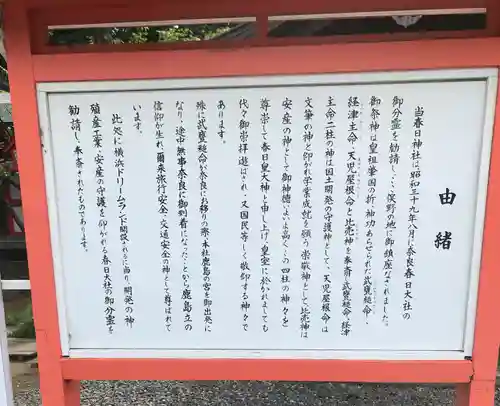 由緒
当春日神社は、昭和三十九年八月に奈良春日大社の
御分霊を勧請し、ここ俣野の地に御鎮座なされました。
御祭神は皇祖肇国の折、神功あらせられた武甕槌命・
経津主命・天児屋根命と比売神を奉斎し武甕槌命、経津
主命二柱の神は国土開発の守護神として、天児屋根命は
文筆の神と仰がれ学業成就を願う崇敬神として比売神は
安産の神として御神徳いよいよ高く、この四社の神々を
尊崇して春日皇大神と申し上げ皇室に於かれましても
代々御崇拝遊ばされ、又国民等しく敬仰する神々で
あります。
殊に武甕槌命が奈良にお移りの際、本社鹿島の宮を御出発に
なり、途中無事奈良に御到着になったことから鹿島立の
信仰が生れ、爾来旅行安全、交通安全の神として尊ばれて
います。
此処に横浜ドリームランド開設されるに当り、開発の神
殖産工業、安産の守護を仰がれる春日大社の御分霊を
勧請し、奉斎されたものであります。